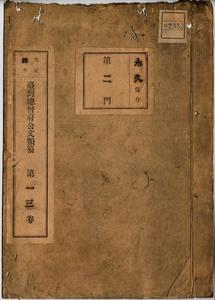 永久保存
第二門
大正
四年
臺灣總督府公文類纂
第一三卷